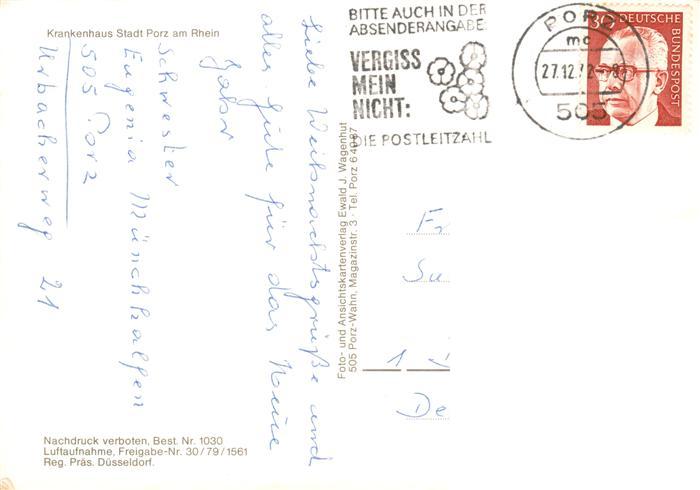 Krankenhaus Stadt Porz am Rhein
Liebe Weihnachtsgrüße und
alles Gute für das Neue
Jahr
Schwester
Eugenia Münchhalfen
505 Porz
Urbacherweg 21
Nachdruck verboten, Best. Nr. 1030
Luftaufnahme, Freigabe-Nr. 30/79/1561
Reg. Präs. Düsseldorf.
Foto- und Ansichtskartenverlag Ewald J. Wagenhut
505 Porz-Wahn, Magazinstr. 3 · Tel. Porz 64087
BITTE AUCH IN DER
ABSENDERANGABE:
VERGISS
MEIN
NICHT:
DIE POSTLEITZAHL
PORZ
mc
27.12.72-8
505
30 DEUTSCHE
BUNDESPOST
Fr
Su
1
De